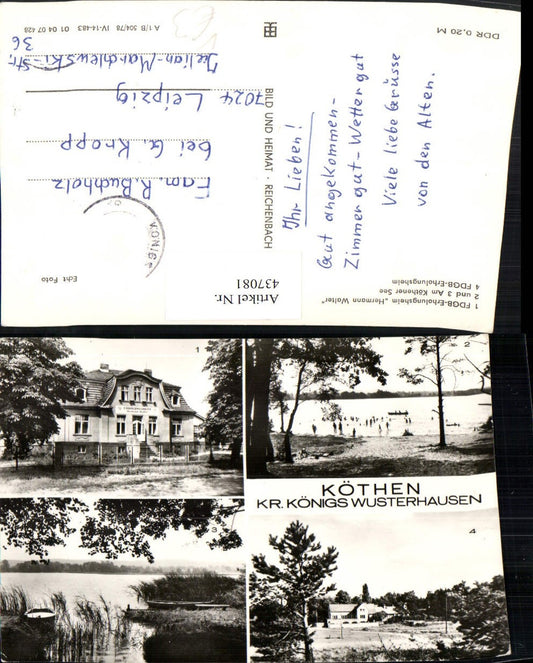 DDR 0,20 M
A 1/B 504/78 IV-14-483 01 04 07 428
BILD UND HEIMAT · REICHENBACH
Ihr Lieben!
Gut angekommen-
Zimmer gut-Wetter gut
Viele liebe Grüsse
von den Alten.
Fam. R. Buchholz
bei G. Knopp
7024 Leipzig
Julian-Marchlewski-Str.
36
Echt Foto
1 FDGB-Erholungsheim „Hermann Walter"
2 und 3 Am Köthener See
4 FDGB-Erholungsheim
Artikel Nr.
437081
1
2
KÖTHEN
KR. KÖNIGS WUSTERHAUSEN
4